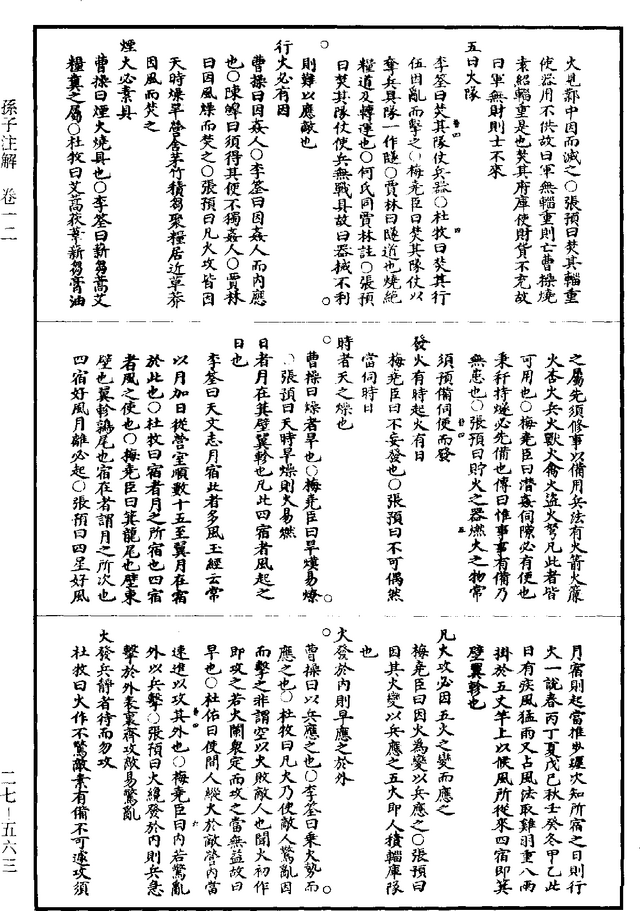 孫子注解 卷一二
火見鄴中因而滅之〇張預曰焚其輜重
使器用不供故曰軍無輜重則亡曹操燒
袁紹輜重是也焚其府庫使財貨不充故
曰軍無財則士不來
五曰火隊
李筌曰焚其隊仗兵器〇杜牧曰焚其行
伍因亂而擊之〇梅堯臣曰焚其隊仗以
奪兵具隊一作隧〇賈林曰隧道也燒絕
糧道及轉運也〇何氏同賈林註〇張預
曰焚其隊仗使兵無戰具故曰器械不利
則難以應敵也
行火必有因
曹操曰因姦人〇李筌曰因姦人而內應
也〇陳皥曰須得其便不獨姦人〇賈林
曰因風燥而焚之〇張預曰凡火攻皆因
天時燥旱營舍茅竹積芻聚糧居近草莽
因風而焚之
煙火必素具
曹操曰煙火燒具也〇李筌曰薪芻蒿艾
糧糞之屬〇杜牧曰艾蒿荻葦薪芻膏油
之屬先須修事以備用兵法有火箭火簾
火杏火兵火獸火禽火盜火弩凡此者皆
可用也〇梅堯臣曰潛姦伺隙必有便也
秉秆持燧必先備也傳曰惟事事有備乃
無患也〇張預曰貯火之器燃火之物常
須預備伺便而發
發火有時起火有日
梅堯臣曰不妄發也〇張預曰不可偶然
當伺時日
時者天之燥也
曹操曰燥者旱也〇梅堯臣曰旱熯易燎
〇張預曰天時旱燥則火易燃
日者月在箕壁翼軫也凡此四宿者風起之
日也
李筌曰天文志月宿此者多風玉經云常
以月加日從營室順數十五至翼月在宿
於此也〇杜牧曰宿者月之所宿也四宿
者風之使也〇梅堯臣曰箕龍尾也壁東
壁也翼軫鶉尾也宿在者謂月之所次也
四宿好風月離必起〇張預曰四星好風
月宿則起當推步躔次知所宿之日則行
火一說春丙丁夏戊己秋壬癸冬甲乙此
日有疾風猛雨又占風法取雞羽重八兩
掛於五丈竿上以候風所從來四宿即箕
壁翼軫也
凡火攻必因五火之變而應之
梅堯臣曰因火為變以兵應之〇張預曰
因其火變以兵應之五火即人積輜庫隊
也
火發於內則早應之於外
曹操曰以兵應之也〇李筌曰乘火勢而
應之也〇杜牧曰凡火乃使敵人驚亂因
而擊之非謂空以火敗敵人也聞火初作
即攻之若火闌衆定而攻之當無益故曰
早也〇杜佑曰使間人縱火於敵營內當
速進以攻其外也〇梅堯臣曰內若驚亂
外以兵擊〇張預曰火纔發於內則兵急
擊於外表裏齊攻敵易驚亂
火發兵靜者待而勿攻
杜牧曰火作不驚敵素有備不可遽攻須
二七－五六三